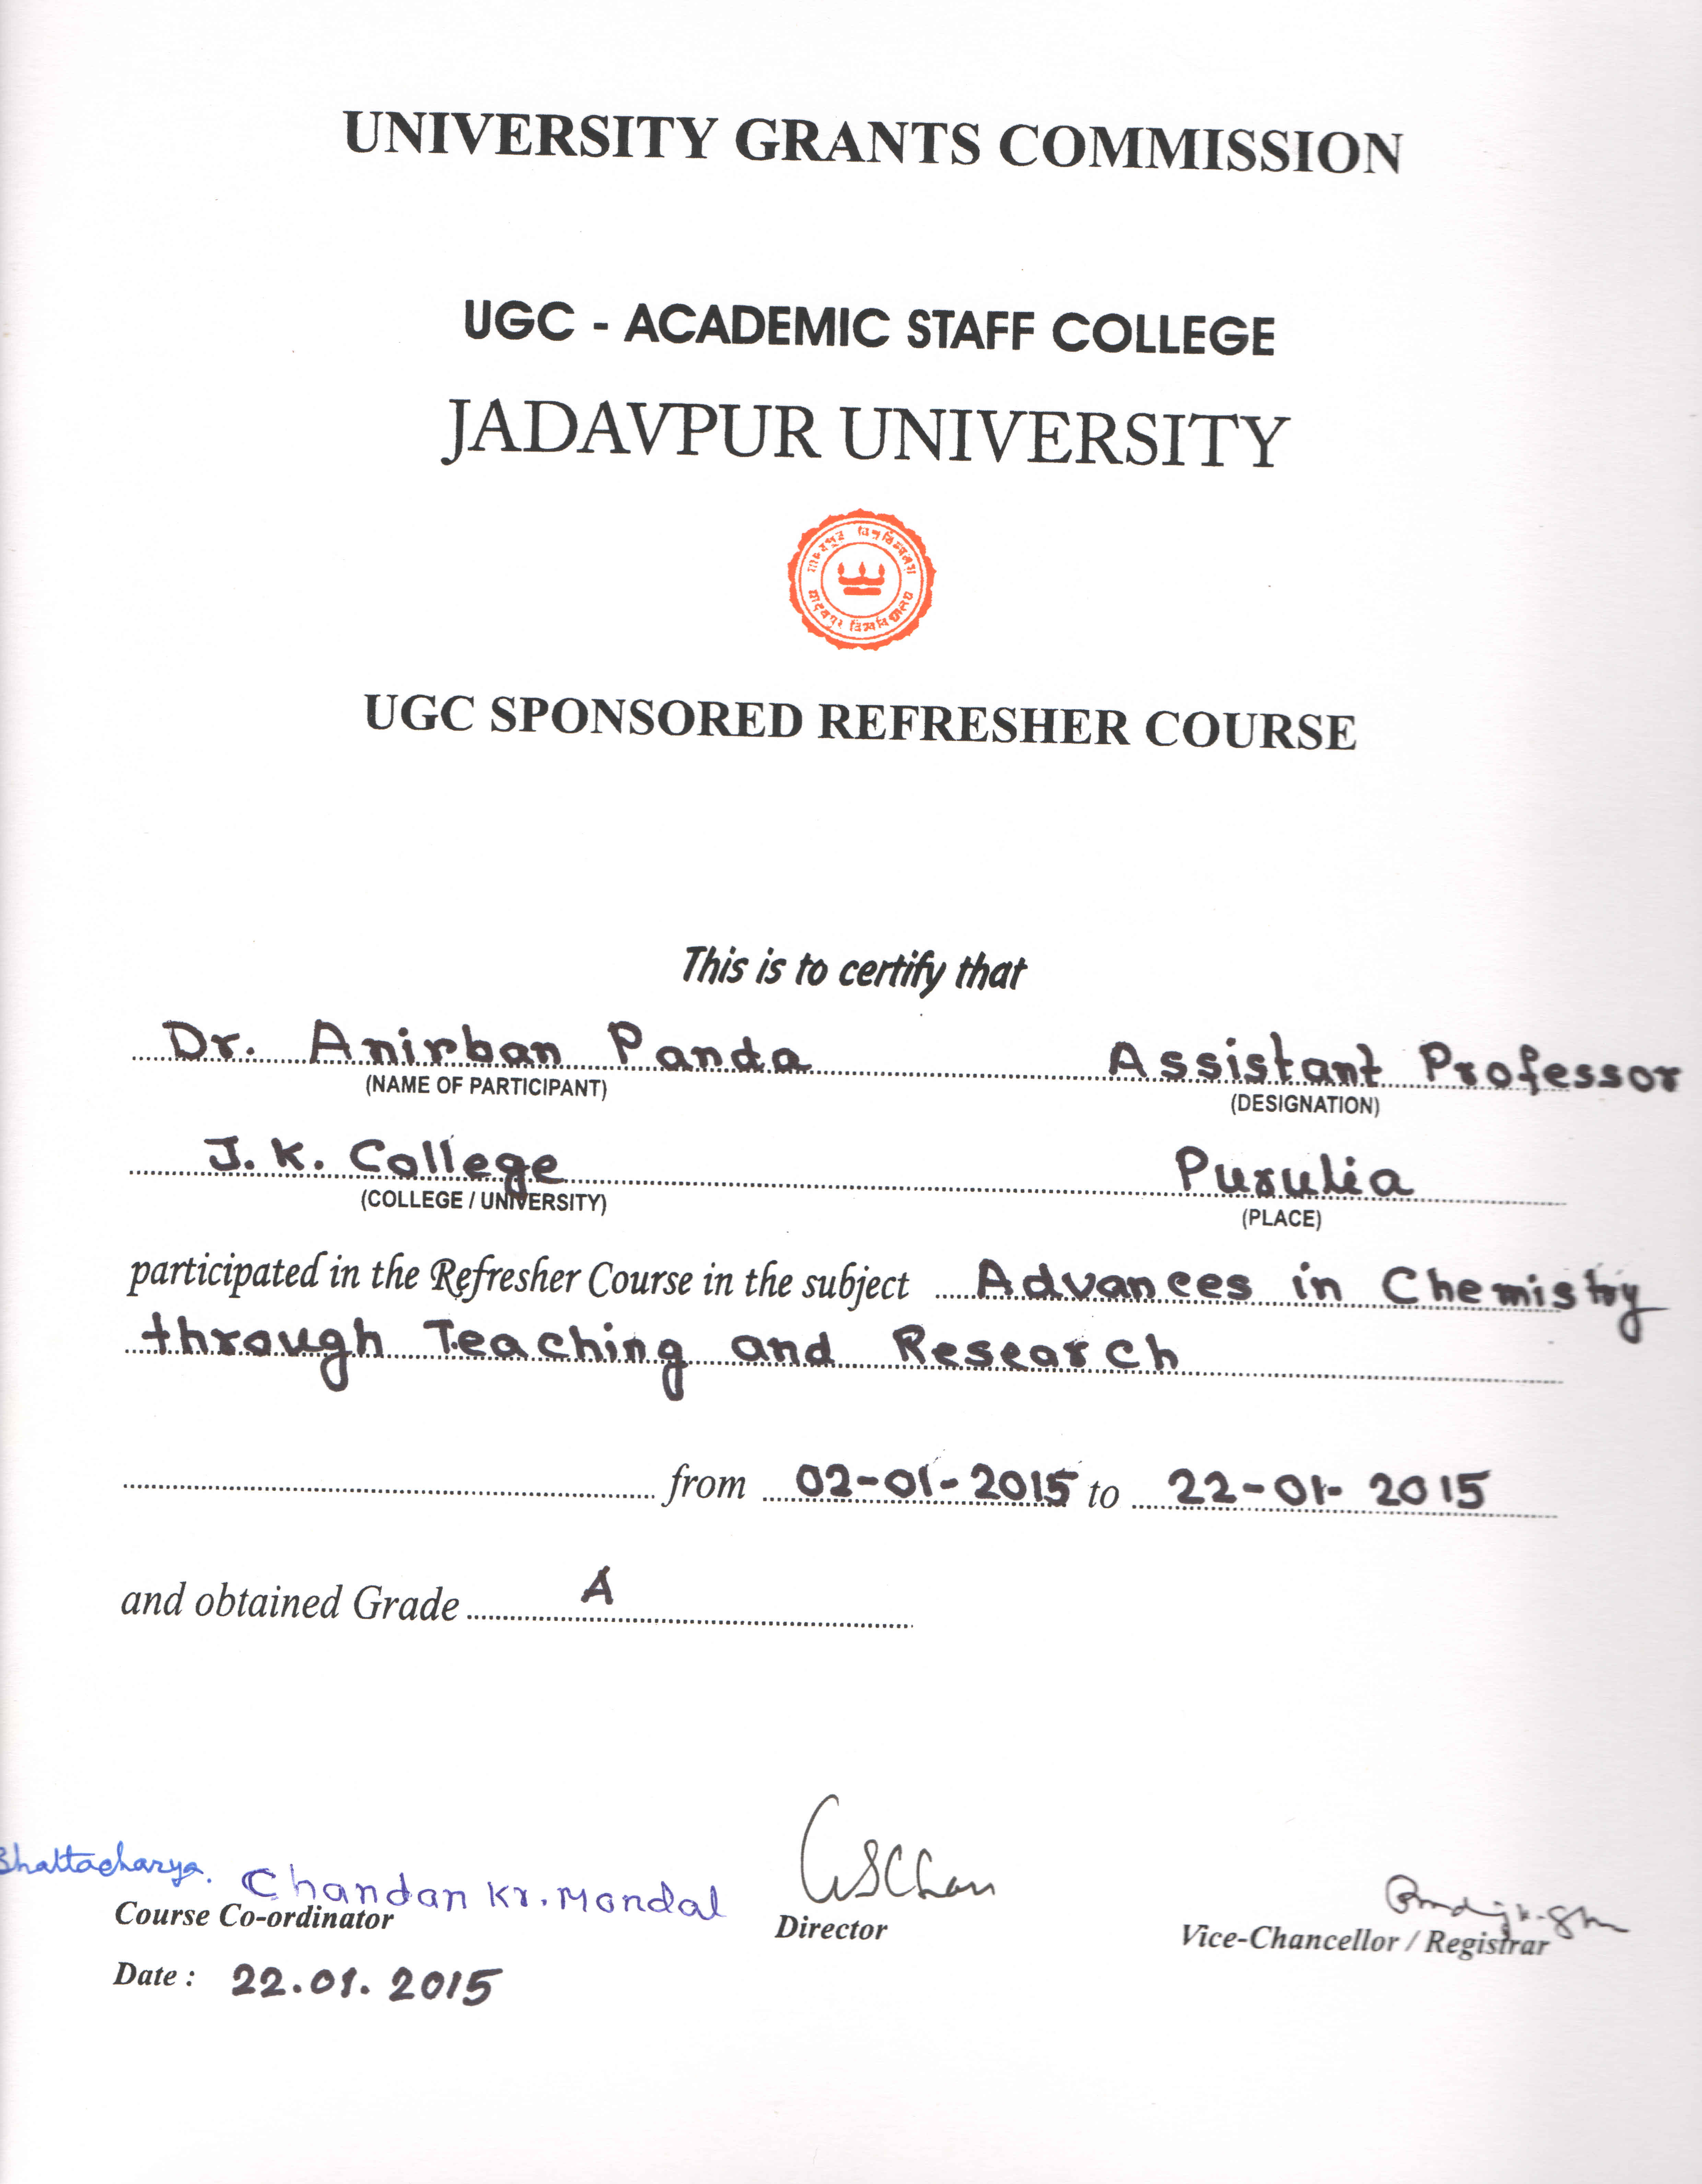 UNIVERSITY GRANTS COMMISSION
UGC - ACADEMIC STAFF COLLEGE
JADAVPUR UNIVERSITY
UGC SPONSORED REFRESHER COURSE
This is to certify that
Dr. Anirban Panda Assistant Professor
(NAME OF PARTICIPANT) (DESIGNATION)
J. K. College Purulia
(COLLEGE / UNIVERSITY) (PLACE)
participated in the Refresher Course in the subject Advances in Chemistry
through Teaching and Research
from 02-01-2015 to 22-01-2015
and obtained Grade A
Bhattacharya. Chandan Kr. Mondal
Course Co-ordinator Director Vice-Chancellor / Registrar
Date : 22.01.2015